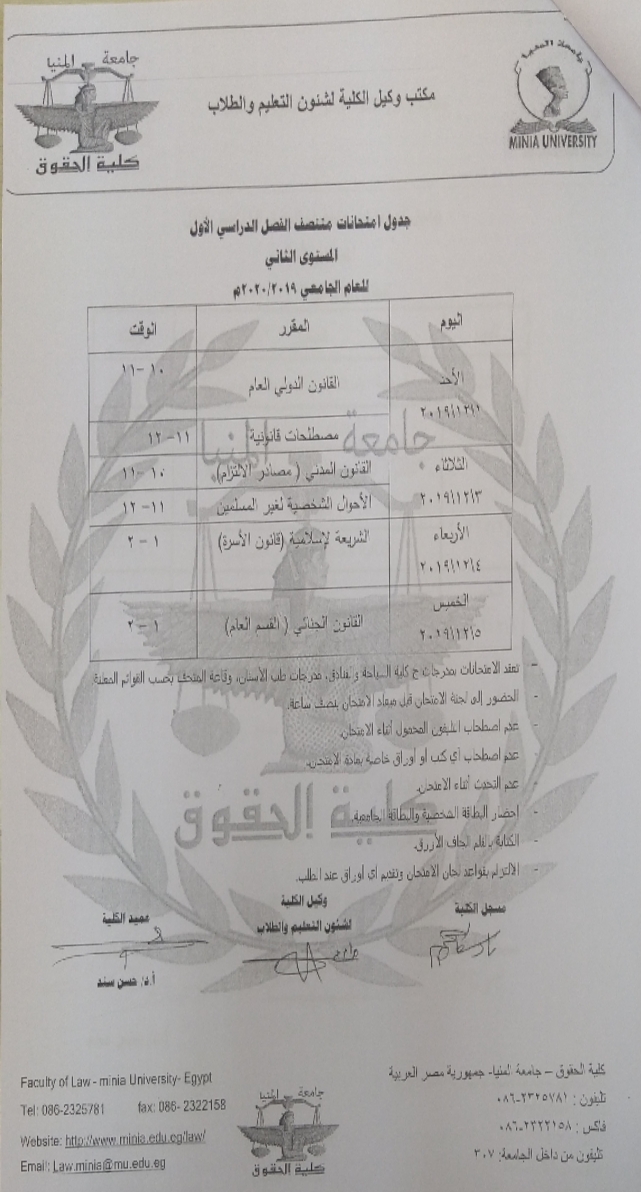 جامعة المنيا
كلية الحقوق
مكتب وكيل الكلية لشئون التعليم والطلاب
جامعة المنيا
MINIA UNIVERSITY
جدول امتحانات منتصف الفصل الدراسي الأول
المستوى الثاني
للعام الجامعي ٢٠٢٠/٢٠١٩م
اليوم المقرر الوقت
الأحد ٢٠١٩/١٢/١ القانون الدولي العام ١٠ – ١١
مصطلحات قانونية ١١ – ١٢
الثلاثاء ٢٠١٩/١٢/٣ القانون المدني ( مصادر الالتزام) ١٠ – ١١
الأحوال الشخصية لغير المسلمين ١١ – ١٢
الأربعاء ٢٠١٩/١٢/٤ الشريعة لإسلامية (قانون الأسرة) ١ – ٢
الخميس ٢٠١٩/١٢/٥ القانون الجنائي ( القسم العام) ١ – ٢
جامعة المنيا
كلية الحقوق
- تعقد الامتحانات بمدرجات ج كلية السياحة والفنادق، مدرجات طب الأسنان، وقاعة المتحف بحسب القوائم المعلنة
- الحضور إلى لجنة الامتحان قبل ميعاد الامتحان بنصف ساعة.
- عدم اصطحاب التليفون المحمول أثناء الامتحان.
- عدم اصطحاب أي كتب أو أوراق خاصة بمادة الامتحان.
- عدم التحدث أثناء الامتحان.
- إحضار البطاقة الشخصية والبطاقة الجامعية.
- الكتابة بالقلم الجاف الأزرق.
- الالتزام بقواعد لجان الامتحان وتقديم أي أوراق عند الطلب.
مسجل الكلية
وكيل الكلية
لشئون التعليم والطلاب
عميد الكلية
أ.د/ حسن سند
كلية الحقوق – جامعة المنيا- جمهورية مصر العربية
تليفون : ٢٣٢٥٧٨١-٠٨٦
فاكس : ٢٣٢٢١٥٨-٠٨٦
تليفون من داخل الجامعة: ٣٠٧
جامعة المنيا
كلية الحقوق
Faculty of Law - minia University- Egypt
Tel: 086-2325781 fax: 086- 2322158
Website: http://www.minia.edu.eg/law/
Email: Law.minia@mu.edu.eg